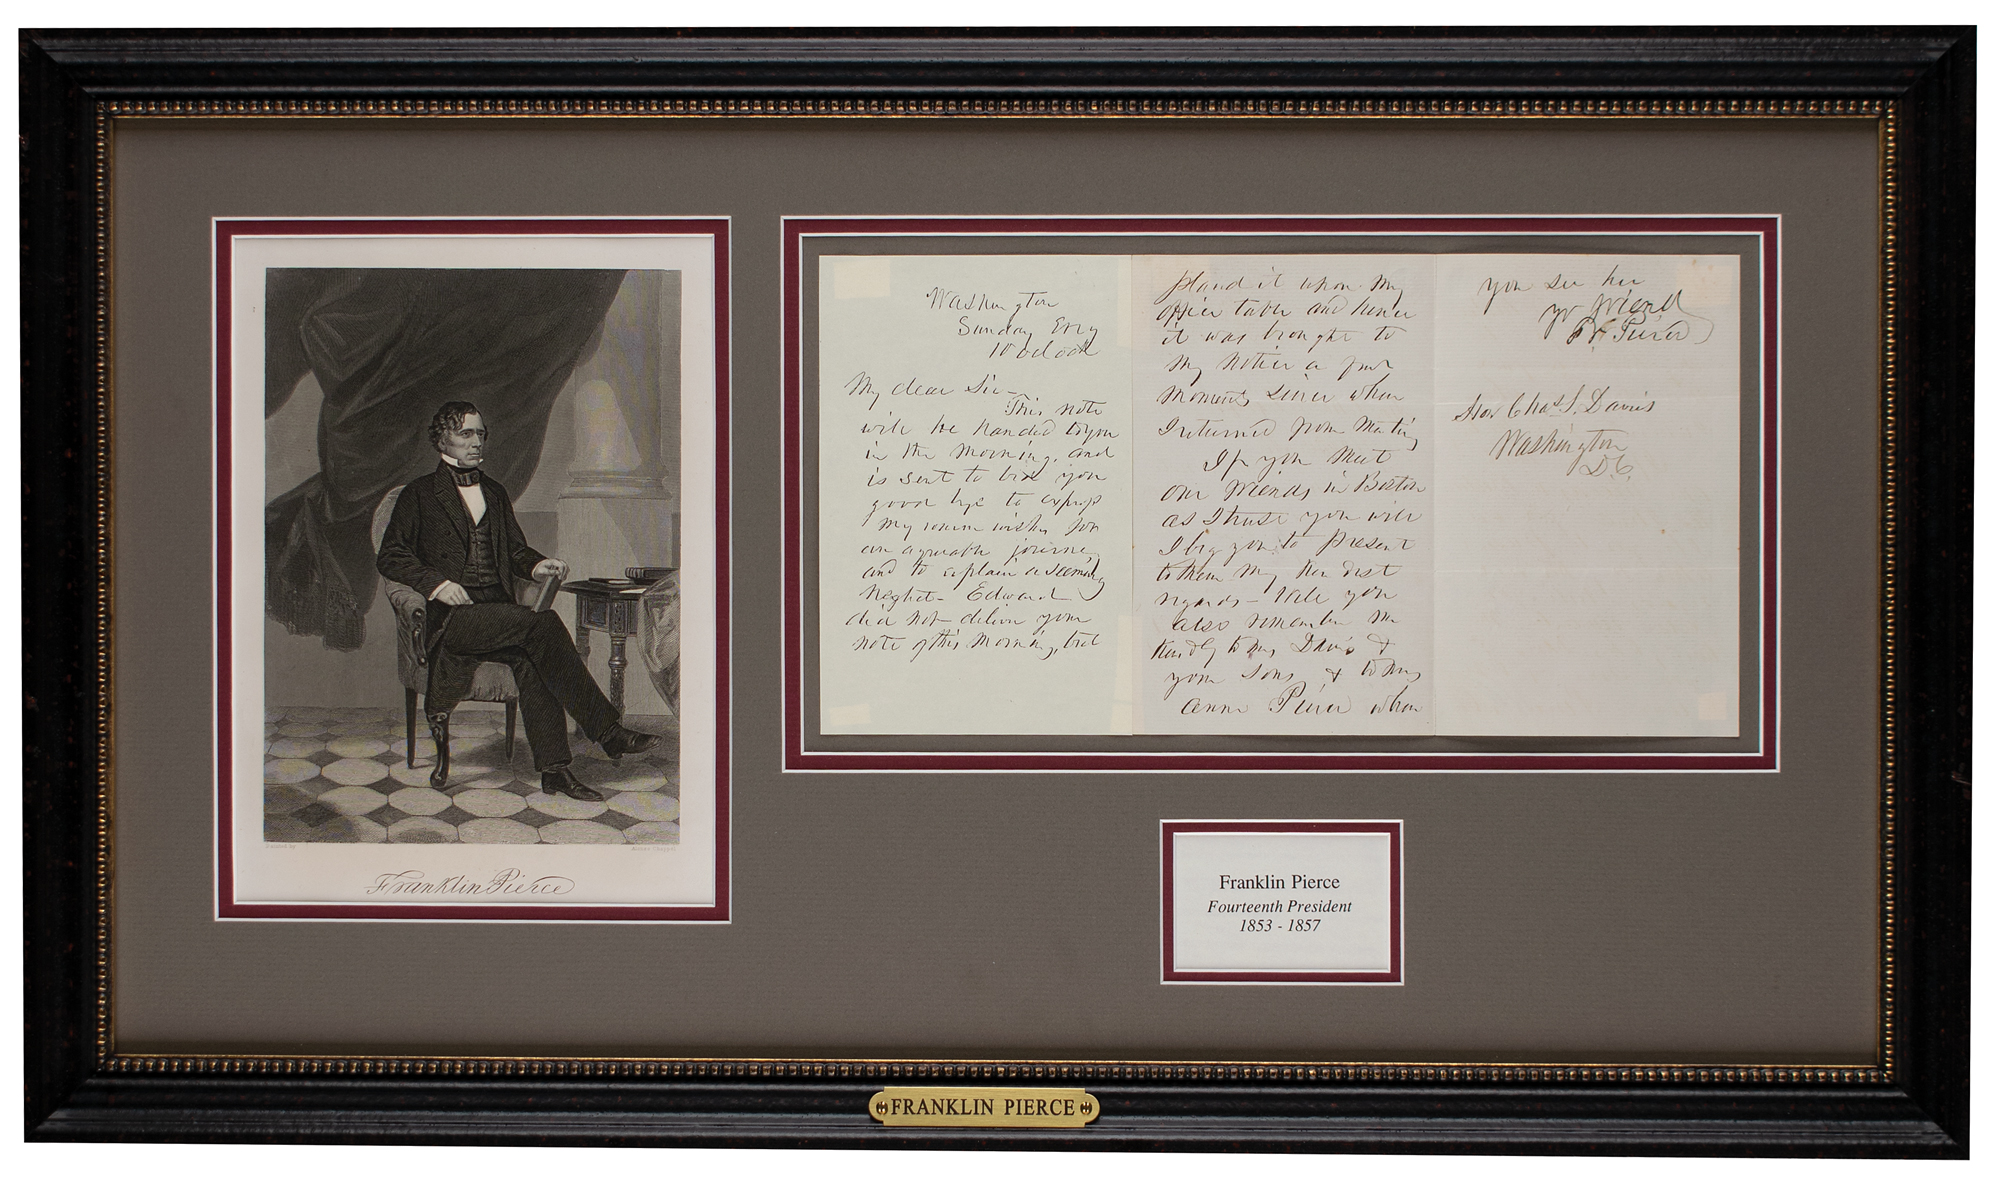 Washington
Sunday Evng
10 oclock
My dear Sir—
This note
will be handed to you
in the morning, and
is sent to bid you
good bye to express
my warm wishes for
an agreeable journey
and to explain a seeming
neglect— Edward
did not deliver your
note of this morning, but
placed it upon my
office table and hence
it was brought to
my notice a few
moments since when
I returned from meeting
If you meet
our friends in Boston
as I trust you will
I beg you to present
to them my kindest
regards—
you
also remember me
kindly to Mrs Davis &
your sons & to Mrs
Anne Pierce when
you see her
yr friend
Pierce
Hon Chas. S. Davies
Washington
D.C.
Painted by
Alonzo Chappel
Franklin Pierce
Franklin Pierce
Fourteenth President
1853 - 1857
FRANKLIN PIERCE